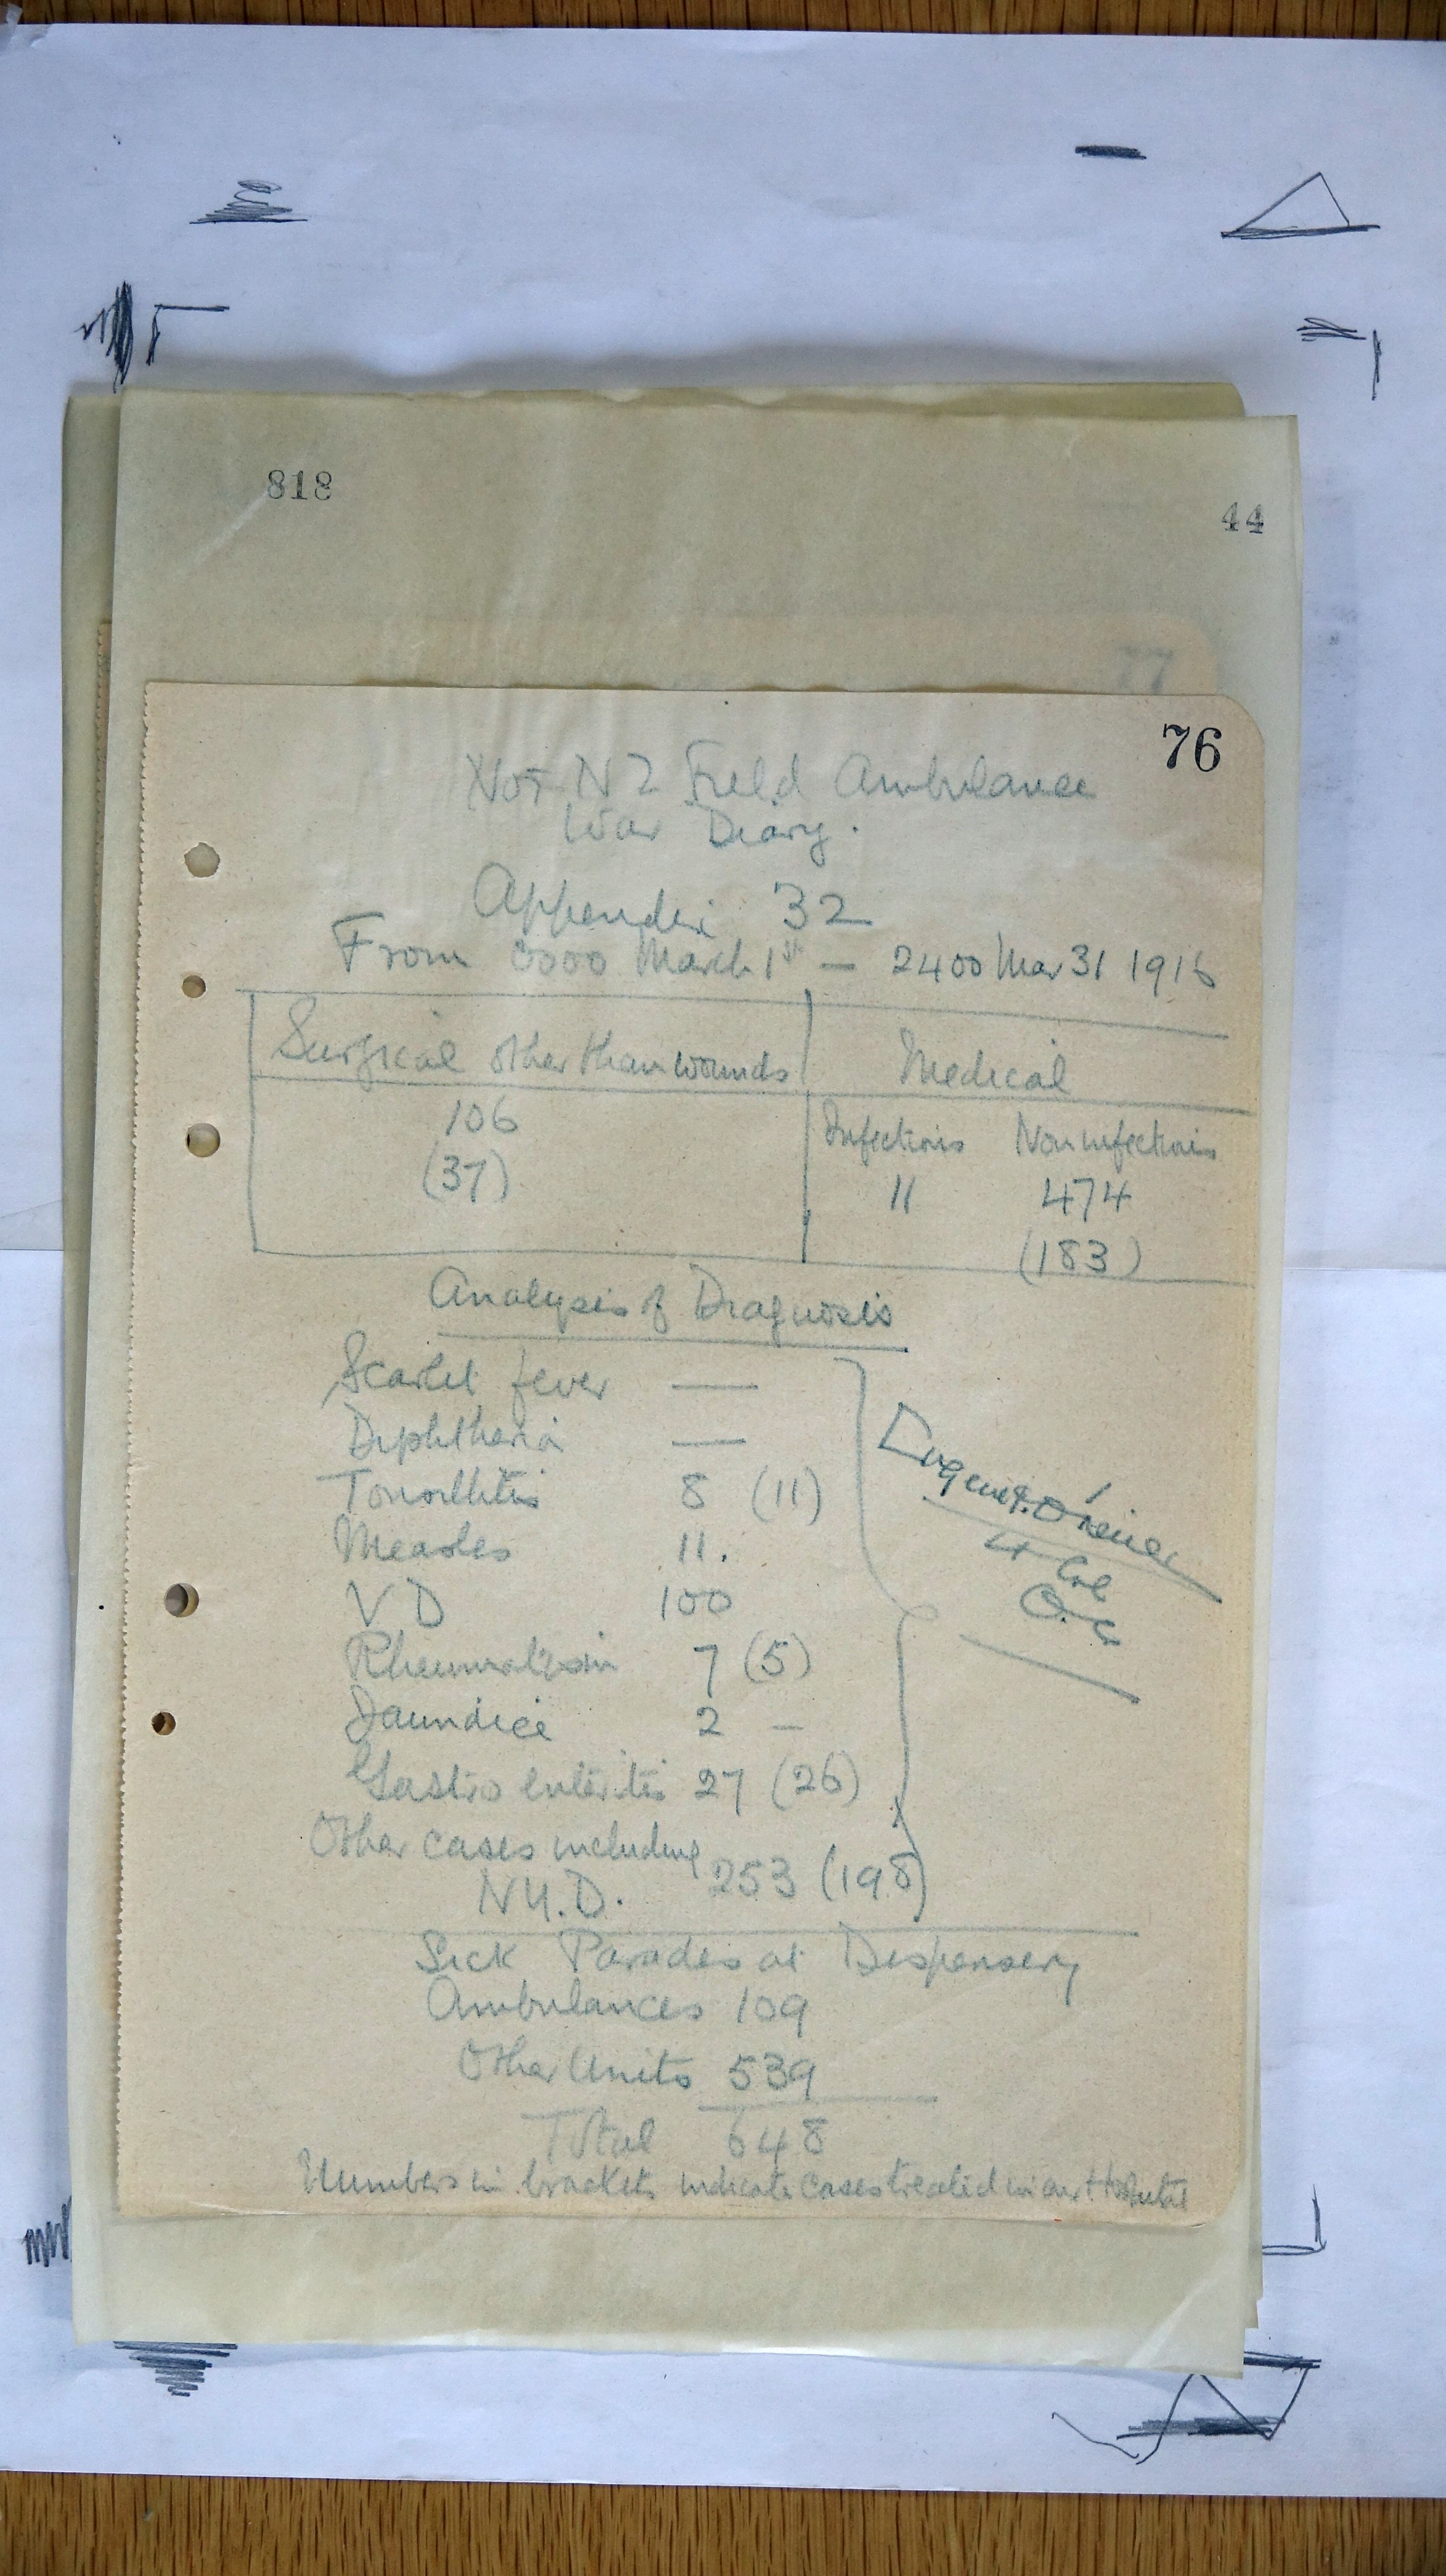 818
44
77
76
No 1 N Z Field Ambulance
War Diary.
Appendix 32
From 0000 March 1st — 2400 Mar 31 1916
Surgical other than wounds Medical
106 Infectious Non infectious
(37) 11 474
(183)
Analysis of Diagnosis
Scarlet fever —
Diphtheria —
Tonsillitis 8 (11)
Measles 11.
V D 100
Rheumatism 7 (5)
Jaundice 2 —
Gastro enteritis 27 (26)
Other cases including
N.Y.D. 253 (198)
Eugene J. O'Neill
Lt Col
O.C.
Sick Parades at Dispensary
Ambulances 109
Other Units 539
Total 648
Numbers in brackets indicate cases treated in our Hospital